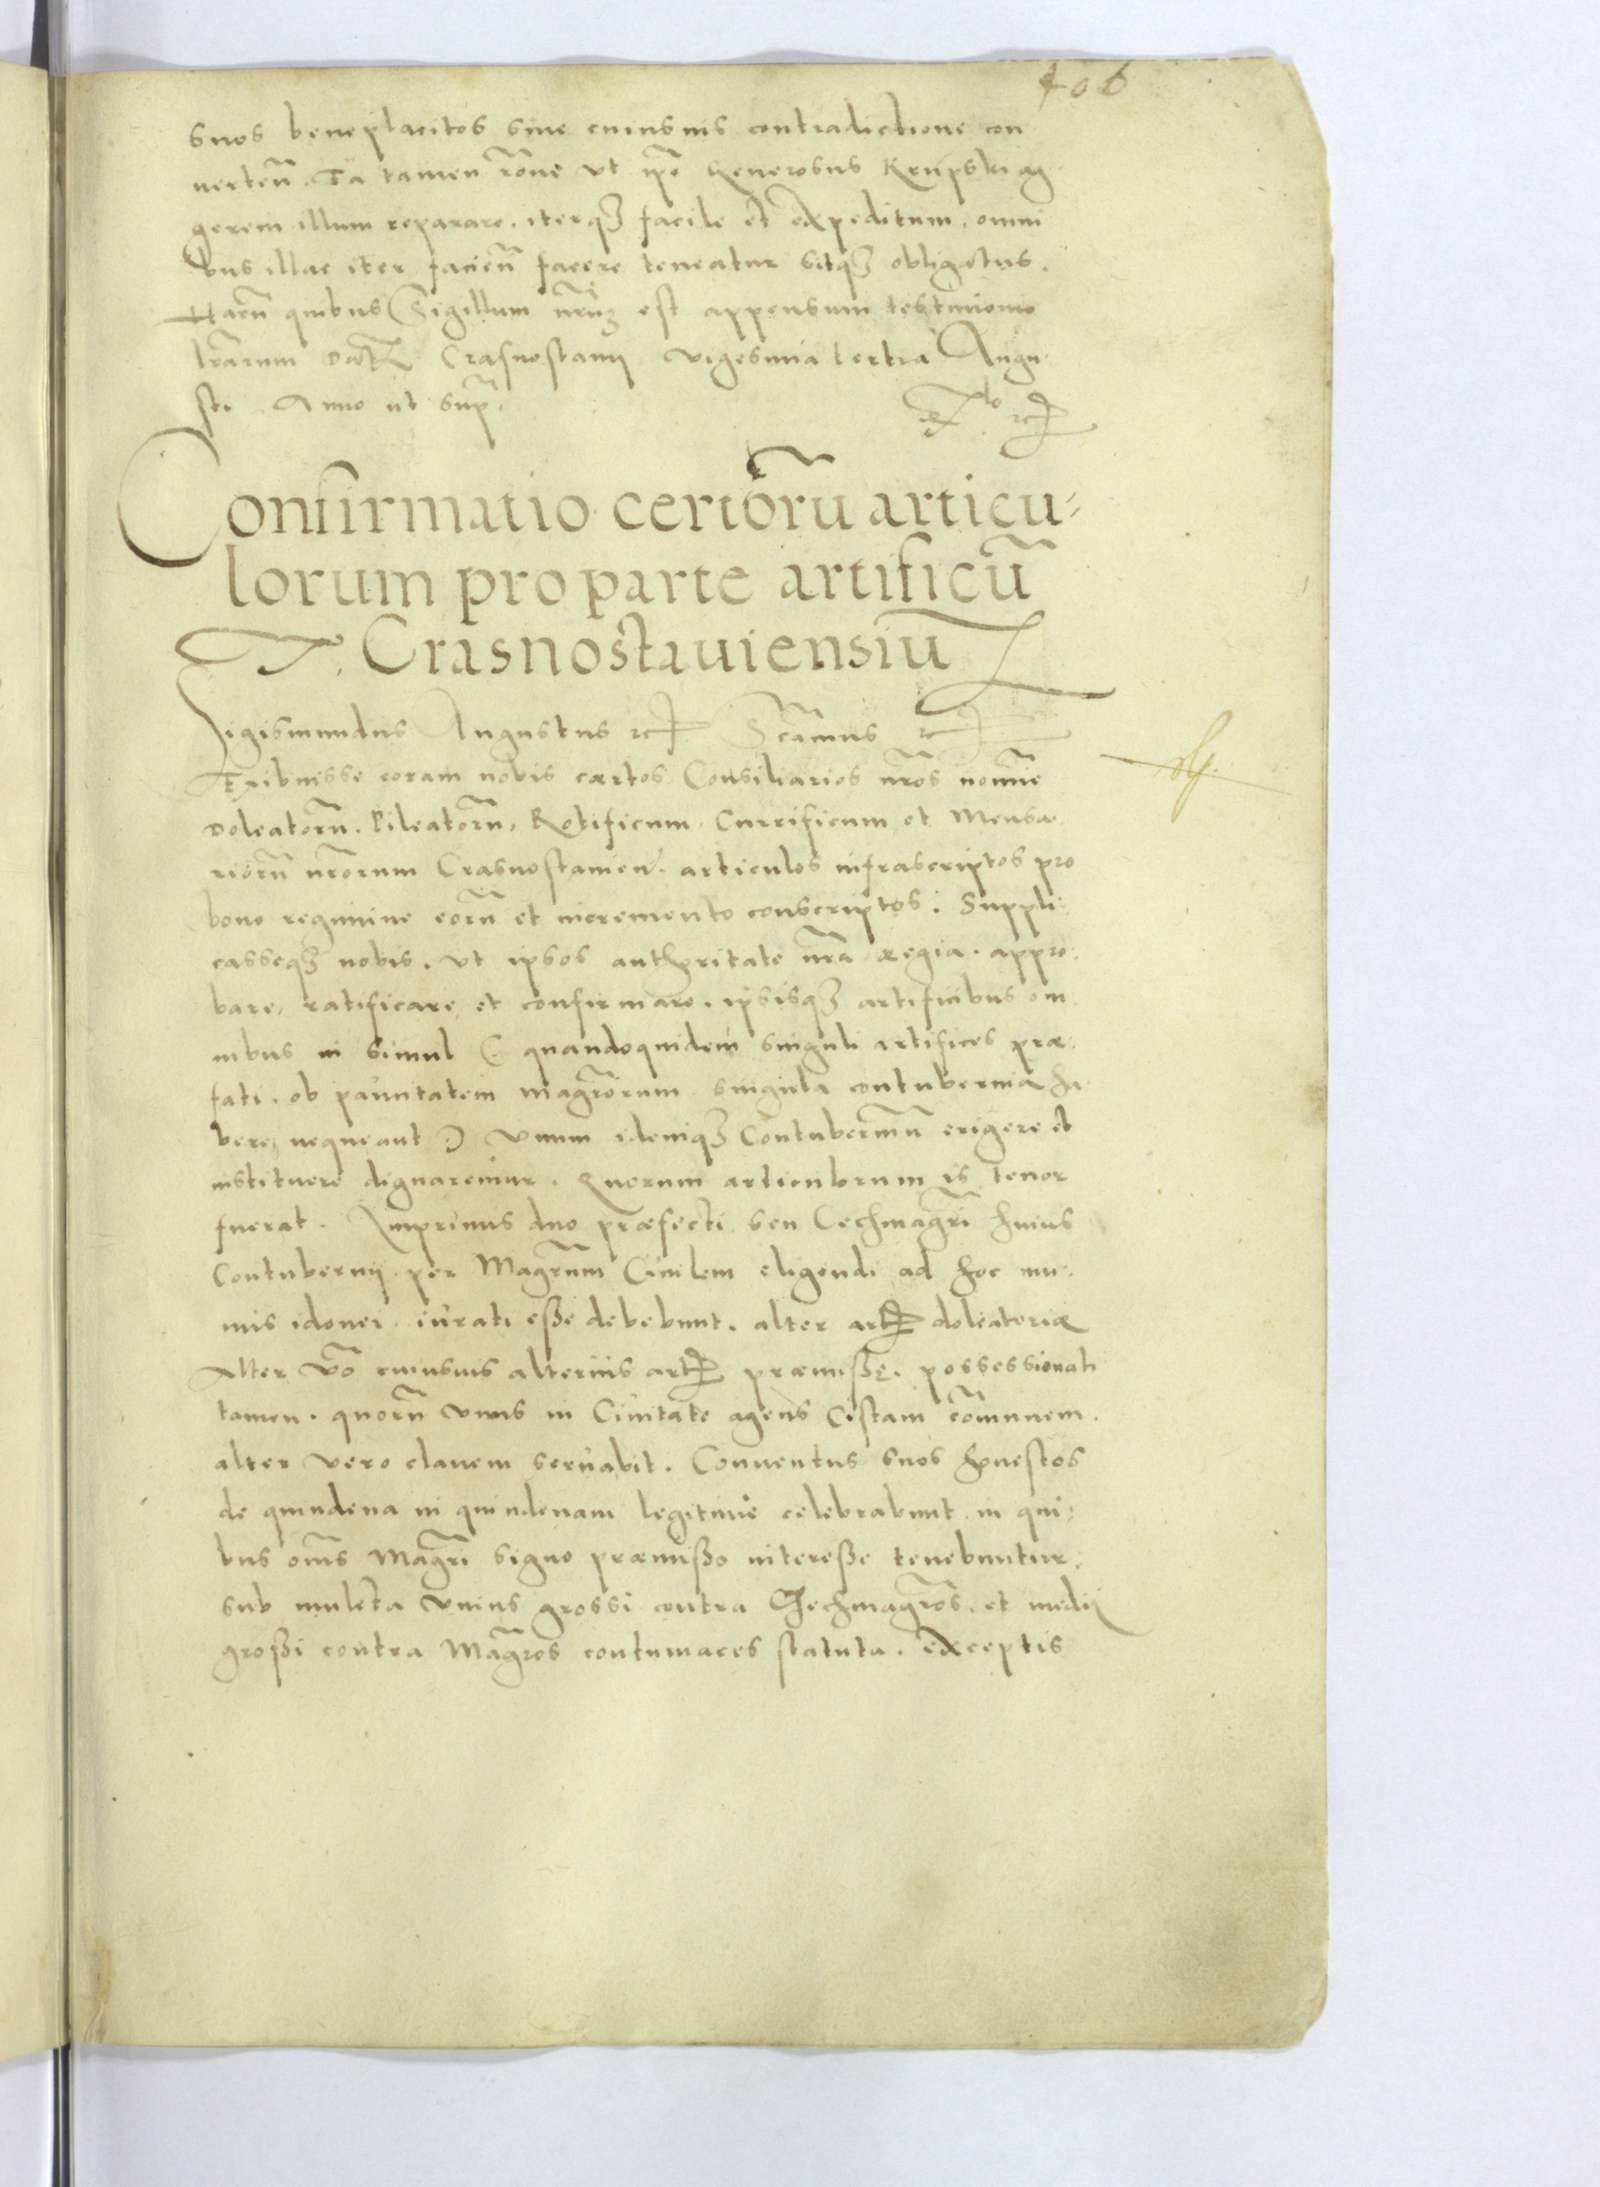 406
suos beneplacitos sine cuiusuis contradictione con
uerteñ. Ea tamen rõne vt ip̃e Generosus Krupski ag
gerem illum reparare. iterq₃ facile et expeditum. omni
bus illac iter facieñ facere teneatur sitq₃ obligatus.
Harũ quibus Sigillum nr̃u₃ est appensum testimonio
lr̃arum Dat Crasnostauij vigesima tertia Augu
sti. Anno ut sup̃.
Confirmatio certoru̅ articu-
lorum pro parte artificu̅
Crasnostauiensiu̅
Sigismundus Augustus etc Sc̃amus etc
Exibuisse coram nobis certos Consiliarios nr̃os nomine
Doleatorũ. Pileatorũ. Rotificum. Currificum et Mensa
riorũ nr̃orum Crasnostauieñ. articulos infrascriptos pro
bono regimine eorũ et incremento conscriptos: Suppli
casseq₃ nobis. vt ipsos authoritate nr̃a Regia. appro
bare, ratificare, et confirmare. ipsisq₃ artificibus om
nibus in simul (: quandoquidem singuli artifices præ
fati. ob paucitatem magr̃orum singula contubernia ha
bere nequeant :) vnum idemq₃ Contuberniũ erigere et
instituere dignaremur. Quorum articulorum is tenor
fuerat. Inprimis duo præfecti seu Cechmagr̃i huius
Contubernij. per Magr̃um Ciuilem eligendi ad hoc mu
nis idonei iurati eße debebunt. alter art doleatoriæ
Alter vo̅ cuiusuis alterius art præmißę. possessionati
tamen. quorũ vnus in Ciuitate agens Cistam com̃unem.
alter vero clauem seruabit. Conuentus suos honestos
de quindena in quindenam legitime celebrabunt. in qui
bus om̃s Magr̃i signo præmißo intereße tenebuntur.
sub mulcta vnius grossi contra Czechmagr̃os. et medij
großi contra Magr̃os contumaces statuta. exceptis